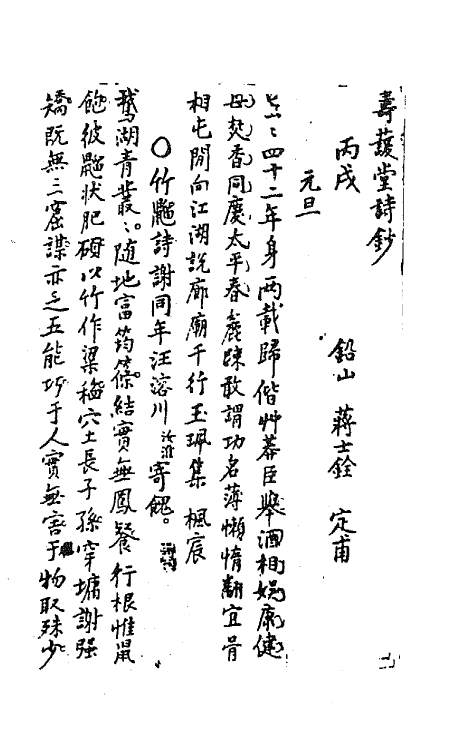 壽蘐堂詩鈔
丙戌　鉛山　蔣士銓　定甫
元旦
四十二年身兩載歸偕艸莽臣舉酒相娛康健
母焚香同慶太平春麄疎敢謂功名薄懶惰翻宜骨
相屯閒向江湖說廊廟千行玉珮集楓宸
○竹𪕋詩謝同年汪溶川汝淮寄餽。
鵞湖青叢叢隨地富筠篠結實無鳳餐行根惟鼠
飽彼𪕋狀肥碩以竹作粱稻穴土長子孫穿墉謝强
矯既無三窟謀亦乏五能巧于人實無害于物取殊少